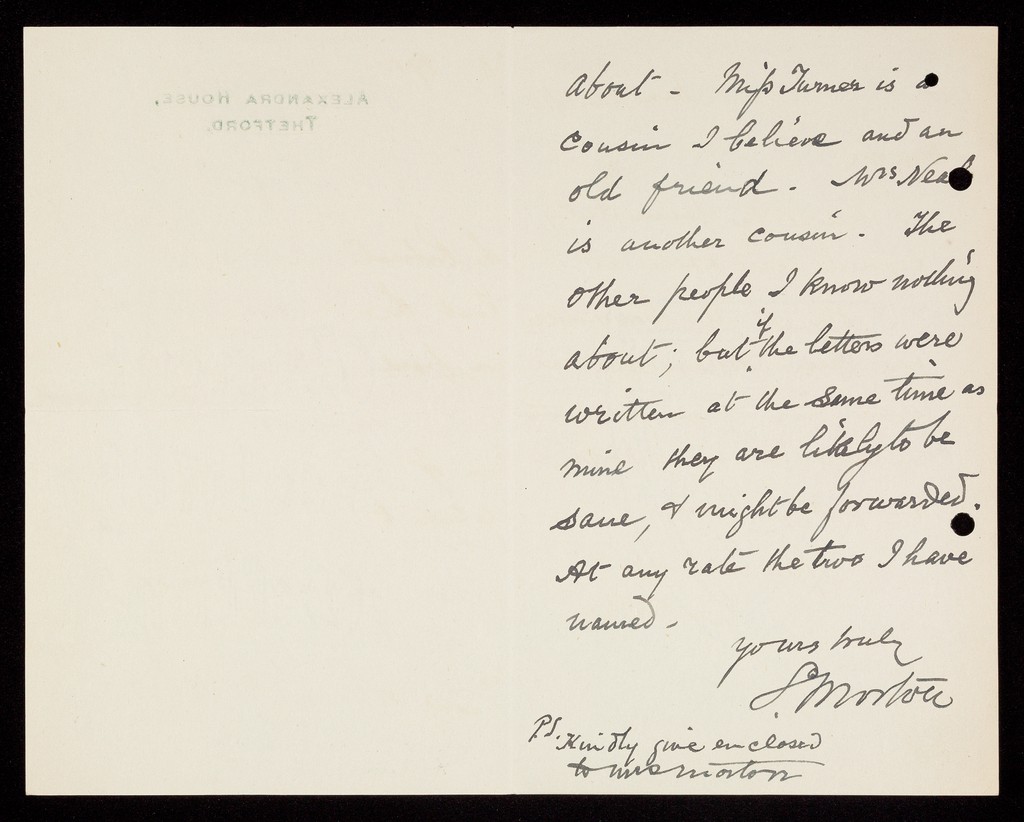 ALEXANDRA HOUSE,
THETFORD.
about - Miss Turner is a
cousin I believe and an
old friend. Mrs Neal
is another cousin. The
other people I know nothing
about; but if the letters were
written at the same time as
mine they are likely to be
sane, & might be forwarded.
At any rate the two I have
named -
yours truly
S. Morton
P.S. Kindly give enclosed
to Mrs Morton